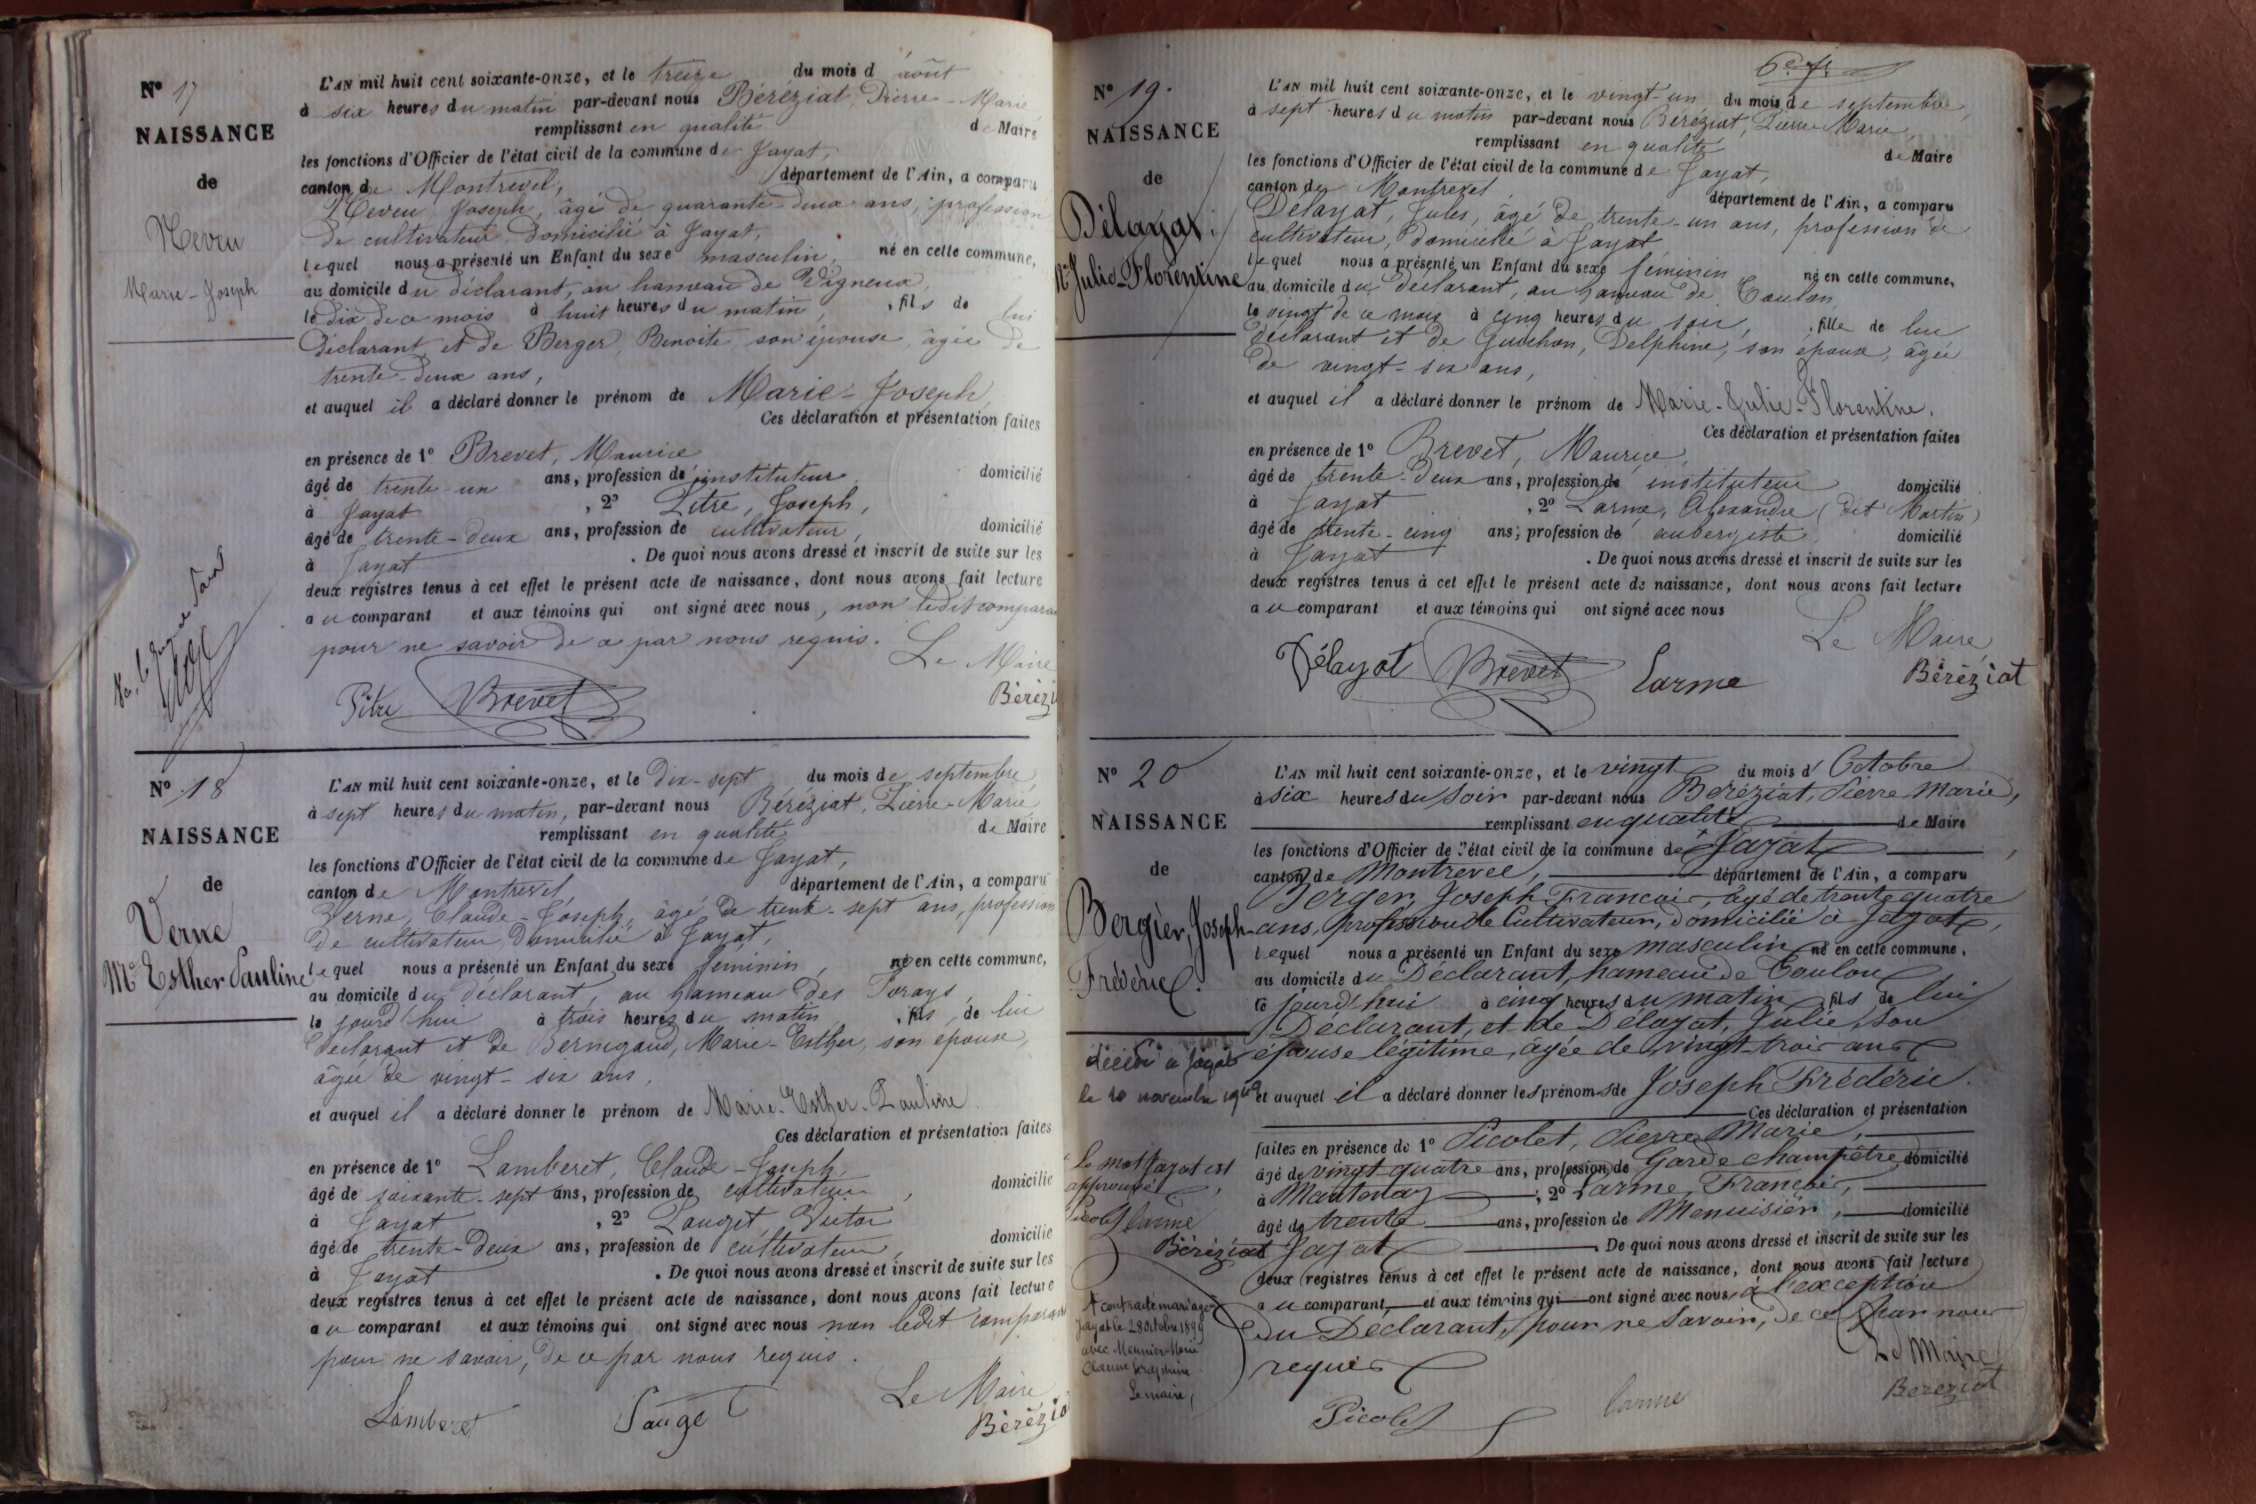 N° 17
NAISSANCE
de
Neveu
Marie-Joseph
L'AN mil huit cent soixante-onze, et le treize du mois d'août
à six heures du matin par-devant nous Béréziat, Pierre-Marie
remplissant en qualité de Maire
les fonctions d'Officier de l'état civil de la commune de Jayat,
canton de Montrevel, département de l'Ain, a comparu
Neveu Joseph, âgé de quarante-deux ans, profession
de cultivateur domicilié à Jayat,
lequel nous a présenté un Enfant du sexe masculin, né en cette commune,
au domicile du déclarant, au hameau de Vigneux,
le dix de ce mois à huit heures du matin, fils de lui
déclarant et de Berger, Benoite son épouse, âgée de
trente-deux ans,
et auquel il a déclaré donner le prénom de Marie-Joseph
Ces déclaration et présentation faites
en présence de 1° Brevet, Maurice
âgé de trente-un ans, profession de instituteur domicilié
à Jayat, 2° Pitre, Joseph,
âgé de trente-deux ans, profession de cultivateur, domicilié
à Jayat. De quoi nous avons dressé et inscrit de suite sur les
deux registres tenus à cet effet le présent acte de naissance, dont nous avons fait lecture
au comparant et aux témoins qui ont signé avec nous, non ledit comparant
pour ne savoir de ce par nous requis.
Le Maire
Pitre Brevet Bérézi
N° 18
NAISSANCE
de
Verne
Me Esther Pauline
L'AN mil huit cent soixante-onze, et le dix-sept du mois de septembre
à sept heures du matin, par-devant nous Béréziat, Pierre-Marie
remplissant en qualité de Maire
les fonctions d'Officier de l'état civil de la commune de Jayat,
canton de Montrevel département de l'Ain, a comparu
Verne, Claude-Joseph, âgé de trente-sept ans, profession
de cultivateur, domicilié à Jayat,
lequel nous a présenté un Enfant du sexe féminin, né en cette commune,
au domicile du déclarant, au hameau des
le jourd'hui à trois heures du matin, fils de lui
déclarant et de Bernigaud, Marie-Esther, son épouse,
âgée de vingt-six ans,
et auquel il a déclaré donner le prénom de Marie-Esther-Pauline
Ces déclaration et présentation faites
en présence de 1° Lamberet, Claude-Joseph
âgé de soixante-sept ans, profession de cultivateur, domicilié
à Jayat, 2° Victor
âgé de trente-deux ans, profession de cultivateur, domicilié
à Jayat. De quoi nous avons dressé et inscrit de suite sur les
deux registres tenus à cet effet le présent acte de naissance, dont nous avons fait lecture
au comparant et aux témoins qui ont signé avec nous non ledit comparant
pour ne savoir, de ce par nous requis.
Le Maire
Lamberet Bérézia
N° 19.
NAISSANCE
de
Délayat
Me Julie-Florentine
L'AN mil huit cent soixante-onze, et le vingt-un du mois de septembre,
à sept heures du matin par-devant nous Béréziat, Pierre-Marie,
remplissant en qualité de Maire
les fonctions d'Officier de l'état civil de la commune de Jayat,
canton de Montrevel, département de l'Ain, a comparu
Délayat, Jules, âgé de trente-un ans, profession de
cultivateur, domicilié à Jayat
lequel nous a présenté un Enfant du sexe féminin né en cette commune,
au domicile du déclarant, au hameau de Toulon
le vingt de ce mois à cinq heures du soir, fille de lui
déclarant et de Guichon, Delphine, son épouse, âgée
de vingt-six ans,
et auquel il a déclaré donner le prénom de Marie-Julie-Florentine.
Ces déclaration et présentation faites
en présence de 1° Brevet, Maurice,
âgé de trente-deux ans, profession de instituteur domicilié
à Jayat, 2° Larme, Alexandre (dit Martin)
âgé de trente-cinq ans, profession de aubergiste domicilié
à Jayat. De quoi nous avons dressé et inscrit de suite sur les
deux registres tenus à cet effet le présent acte de naissance, dont nous avons fait lecture
au comparant et aux témoins qui ont signé avec nous
Le Maire
Délayat Brevet Larme Béréziat
N° 20
NAISSANCE
de
Bergier, Joseph-
Frédéric.
décédé à Jayat
le 10 novembre
le mot Jayat est
approuvé
Picolet Larme
Béréziat
A contracté mariage à
Jayat le 28 octobre 1899
avec Meunier Marie
Claudine Joséphine
Le maire,
L'AN mil huit cent soixante-onze, et le vingt du mois d'Octobre
à six heures du soir par-devant nous Béréziat, Pierre Marie,
remplissant en qualité de Maire
les fonctions d'Officier de l'état civil de la commune de Jayat,
canton de Montrevel, département de l'Ain, a comparu
Berger, Joseph François, âgé de trente quatre
ans, profession de Cultivateur, domicilié à Jayat,
lequel nous a présenté un Enfant du sexe masculin né en cette commune,
au domicile du Déclarant, hameau de Toulon
le jourd'hui à cinq heures du matin, fils de lui
Déclarant, et de Délayat, Julie, son
épouse légitime, âgée de vingt-trois ans
et auquel il a déclaré donner les prénoms de Joseph Frédéric.
Ces déclaration et présentation
faites en présence de 1° Picolet, Pierre Marie,
âgé de vingt quatre ans, profession de Garde champêtre domicilié
à Mantenay; 2° Larme, François,
âgé de trente ans, profession de Menuisier, domicilié
à Jayat. De quoi nous avons dressé et inscrit de suite sur les
deux registres tenus à cet effet le présent acte de naissance, dont nous avons fait lecture
au comparant et aux témoins qui ont signé avec nous, à l'exception
du Déclarant, pour ne savoir, de ce par nous
requis
Le Maire
Picolet Larme Béréziat